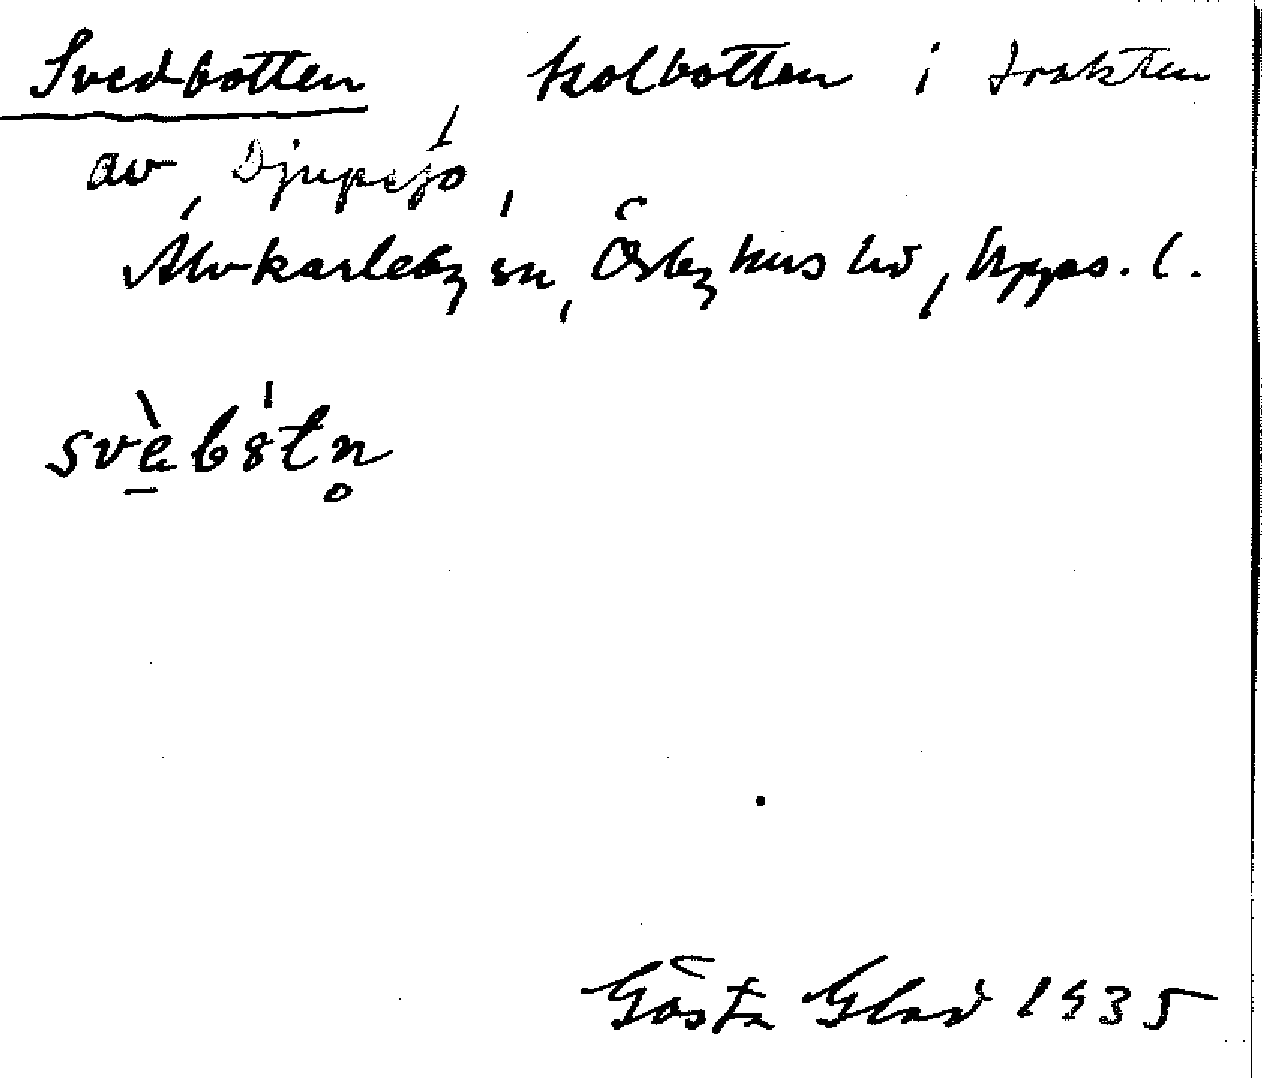 Svedbotten, kolbotten i trakten
av Djupsjö,
Älvkarleby sn, Örbyhus hd, Upps. l.
svèbȣ́tn̥
Gösta Glad 1935